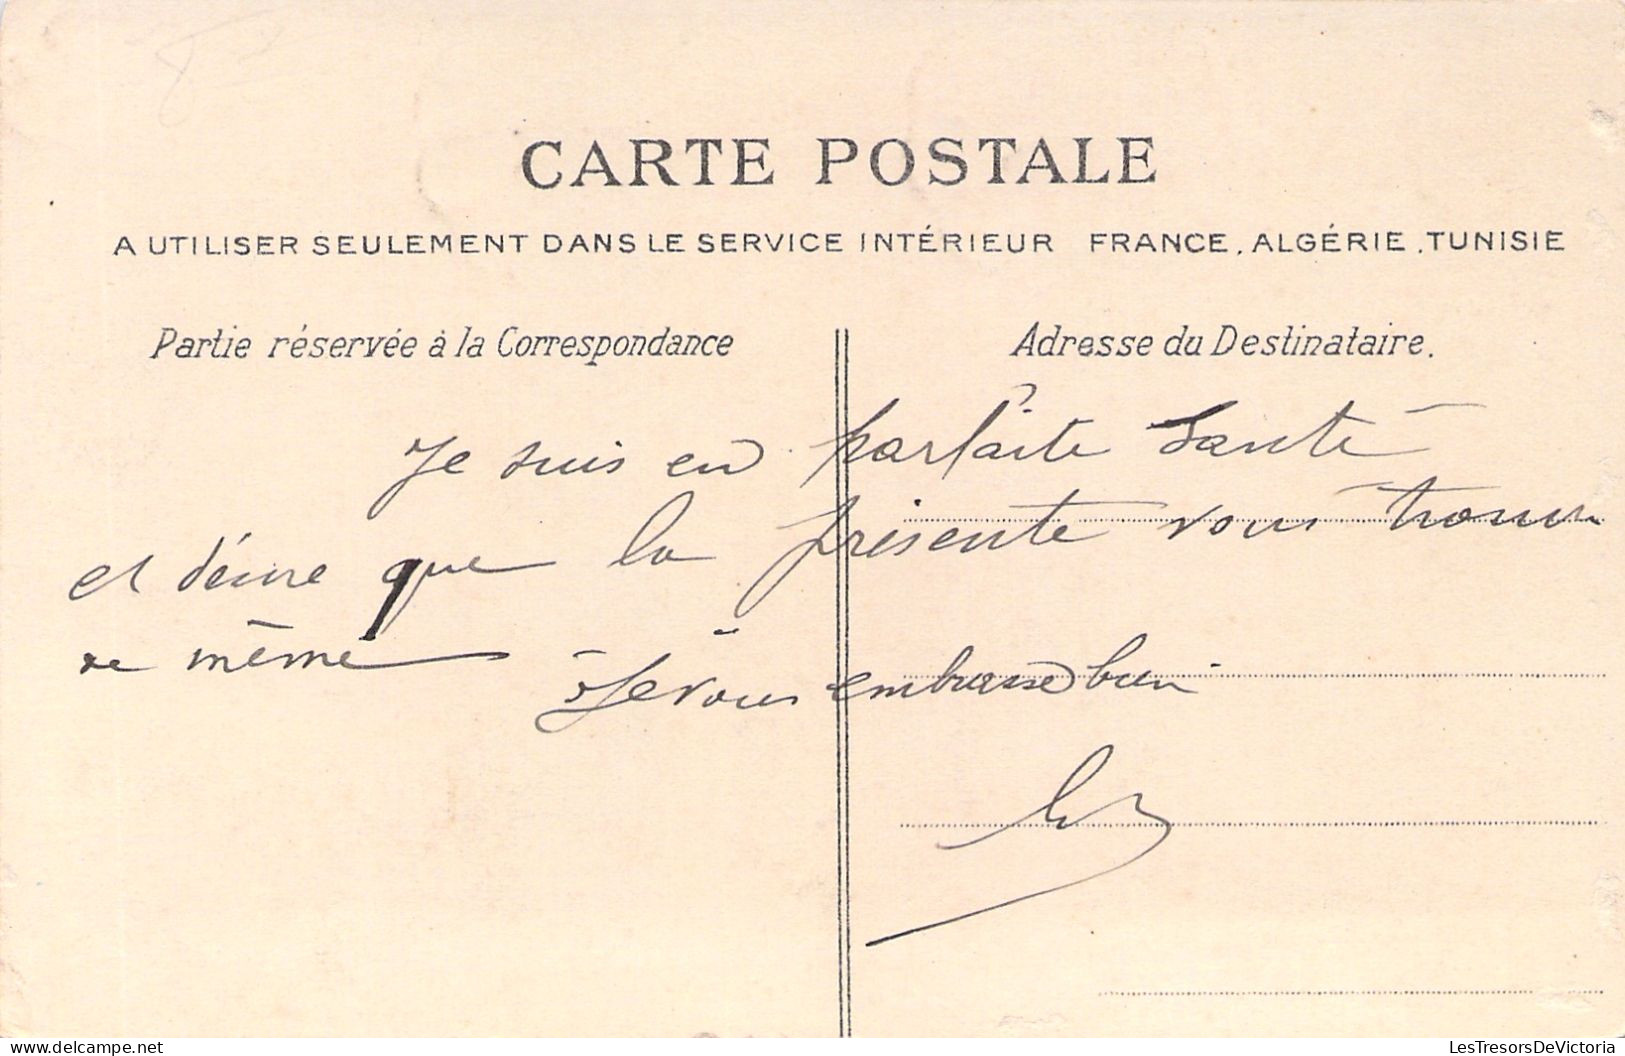 CARTE POSTALE
A UTILISER SEULEMENT DANS LE SERVICE INTÉRIEUR FRANCE, ALGÉRIE, TUNISIE
Partie réservée à la Correspondance
Adresse du Destinataire.
Je suis en parfaite santé
et désire que la présente vous trouve
de même
Je vous embrasse bien
LesTresorsDeVictoria